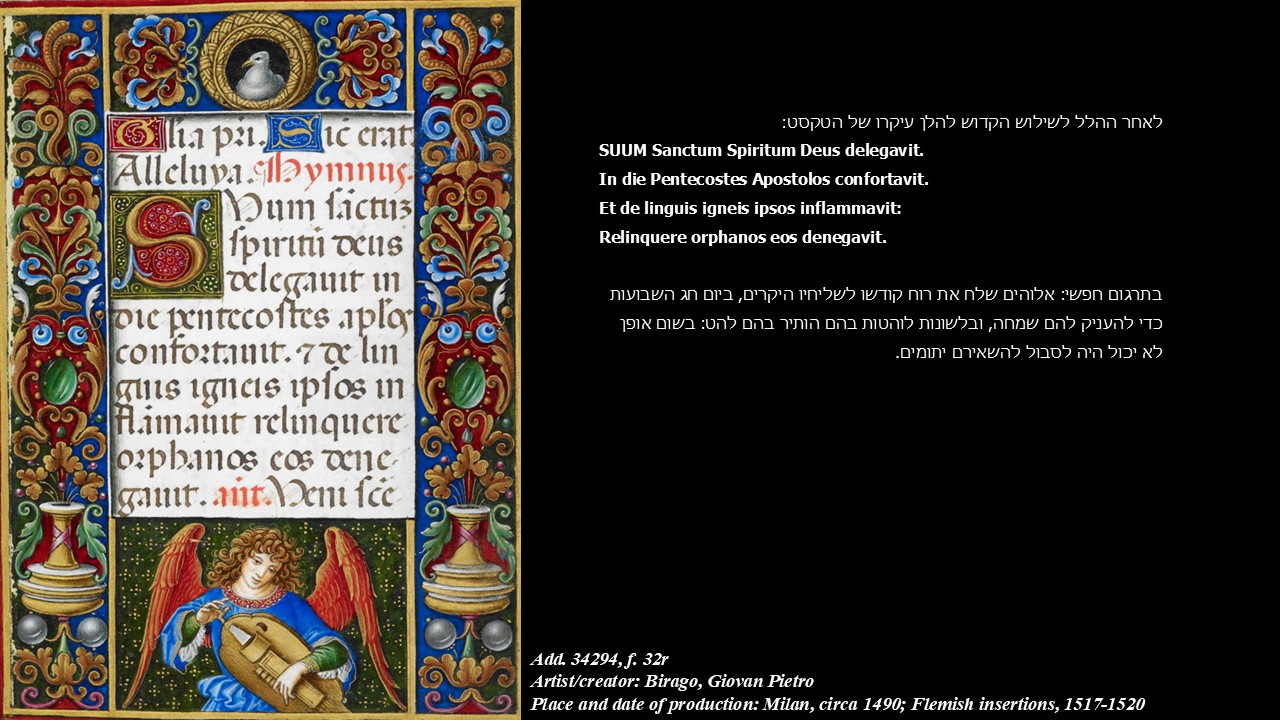 Glia pri. Sic erat
Alleluya. Hymnus.
SVum sāctūs
spiritū deus
delegavit in
die pentecostes aplos
confortavit. ⁊ de lin
guis igneis ipsos in
flāmavit relinquere
orphanos eos dene-
gavit. añt. Veni scē
לאחר ההלל לשילוש הקדוש להלך עיקרו של הטקסט:
SUUM Sanctum Spiritum Deus delegavit.
In die Pentecostes Apostolos confortavit.
Et de linguis igneis ipsos inflammavit:
Relinquere orphanos eos denegavit.
בתרגום חפשי: אלוהים שלח את רוח קודשו לשליחיו היקרים, ביום חג השבועות
כדי להעניק להם שמחה, ובלשונות לוהטות בהם הותיר בהם להט: בשום אופן
לא יכול היה לסבול להשאירם יתומים.
Add. 34294, f. 32r
Artist/creator: Birago, Giovan Pietro
Place and date of production: Milan, circa 1490; Flemish insertions, 1517-1520